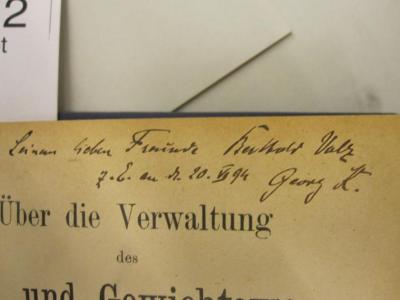 2
t
Seinem lieben Freunde Berthold Volz
z. E. an d. 20. VI 94
Georg K.
Über die Verwaltung
des
und Gewichts